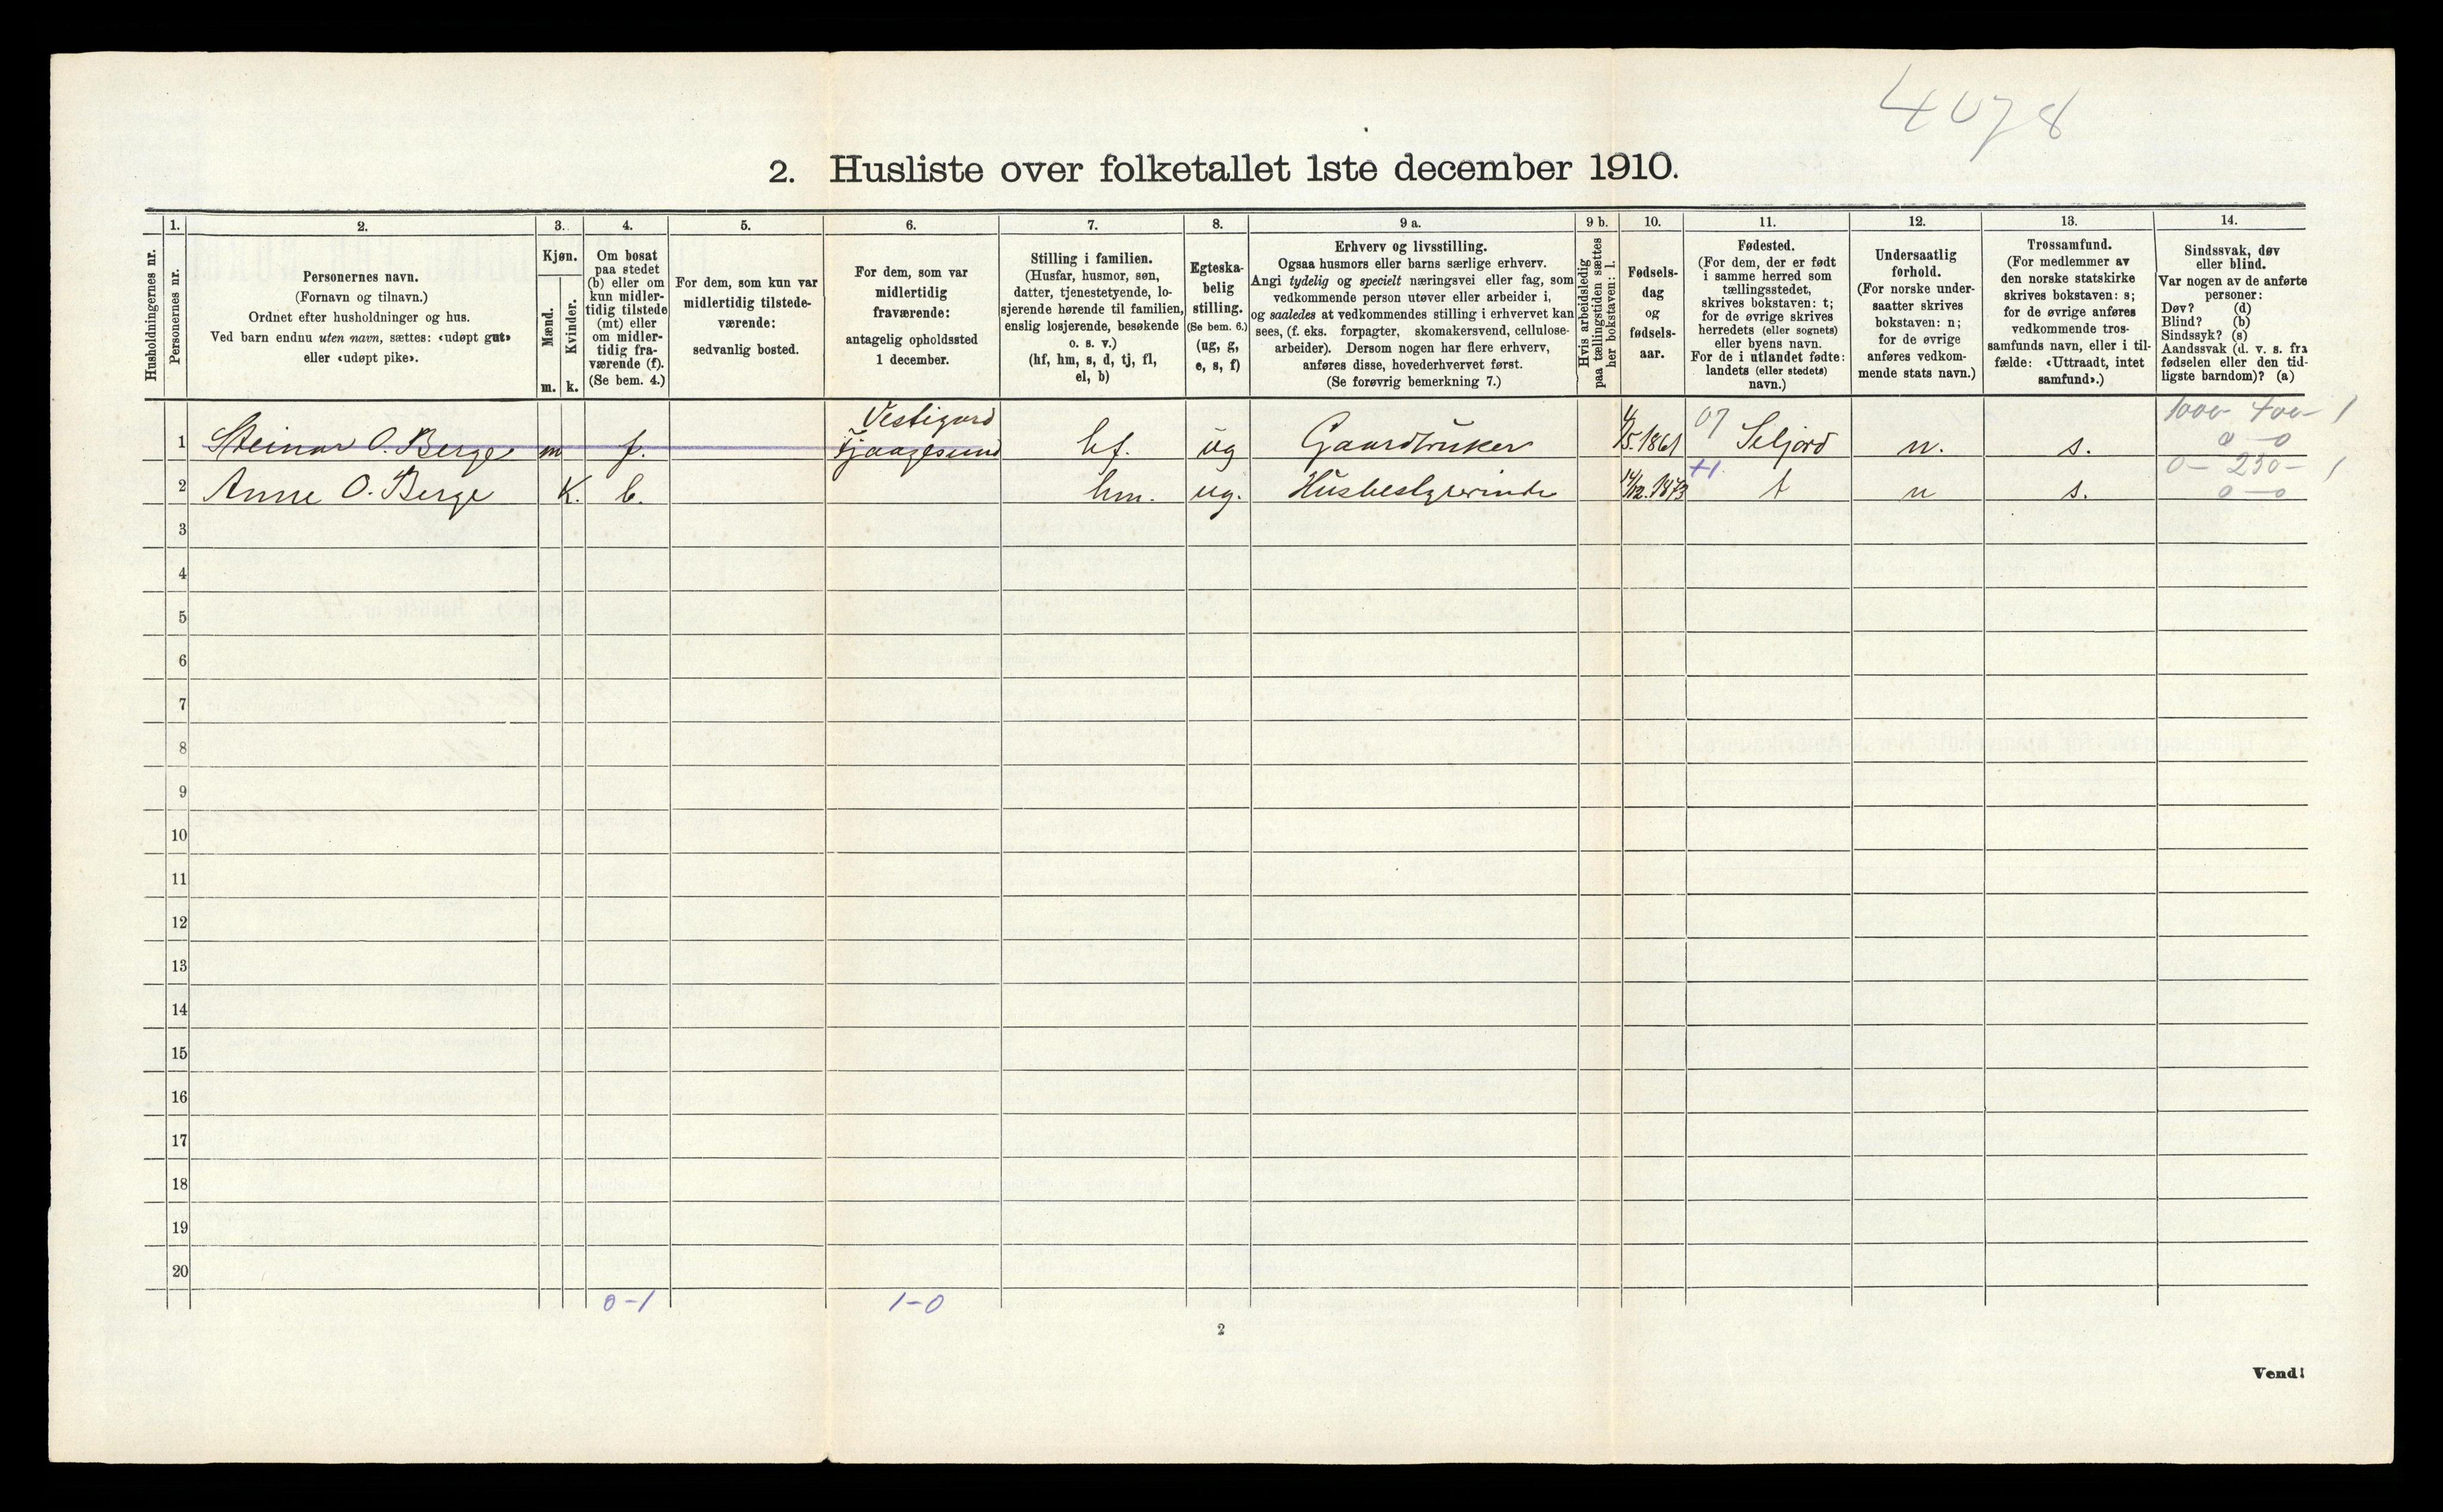 4078
2. Husliste over folketallet 1ste december 1910.
Husholdningernes nr.
1.
Personernes nr.
2.
Personernes navn.
(Fornavn og tilnavn.)
Ordnet efter husholdninger og hus.
Ved barn endnu uten navn, sættes: «udøpt gut»
eller «udøpt pike».
3.
Kjøn.
Mænd.
m.
Kvinder.
k.
4.
Om bosat
paa stedet
(b) eller om
kun midler-
tidig tilstede
(mt) eller
om midler-
tidig fra-
værende (f).
(Se bem. 4.)
5.
For dem, som kun var
midlertidig tilstede-
værende:
sedvanlig bosted.
6.
For dem, som var
midlertidig
fraværende:
antagelig opholdssted
1 december.
7.
Stilling i familien.
(Husfar, husmor, søn,
datter, tjenestetyende, lo-
sjerende hørende til familien,
enslig losjerende, besøkende
o. s. v.)
(hf, hm, s, d, tj, fl,
el, b)
8.
Egteska-
belig
stilling.
(Se bem. 6.)
(ug, g,
e, s, f)
9 a.
Erhverv og livsstilling.
Ogsaa husmors eller barns særlige erhverv.
Angi tydelig og specielt næringsvei eller fag, som
vedkommende person utøver eller arbeider i,
og saaledes at vedkommendes stilling i erhvervet kan
sees, (f. eks. forpagter, skomakersvend, cellulose-
arbeider). Dersom nogen har flere erhverv,
anføres disse, hovederhvervet først.
(Se forøvrig bemerkning 7.)
9 b.
Hvis arbeidsledig
paa tællingstiden sættes
her bokstaven: l.
10.
Fødsels-
dag
og
fødsels-
aar.
11.
Fødested.
(For dem, der er født
i samme herred som
tællingsstedet,
skrives bokstaven: t;
for de øvrige skrives
herredets (eller sognets)
eller byens navn.
For de i utlandet fødte:
landets (eller stedets)
navn.)
12.
Undersaatlig
forhold.
(For norske under-
saatter skrives
bokstaven: n;
for de øvrige
anføres vedkom-
mende stats navn.)
13.
Trossamfund.
(For medlemmer av
den norske statskirke
skrives bokstaven: s;
for de øvrige anføres
vedkommende tros-
samfunds navn, eller i til-
fælde: «Uttraadt, intet
samfund».)
14.
Sindssvak, døv
eller blind.
Var nogen av de anførte
personer:
Døv? (d)
Blind? (b)
Sindssyk? (s)
Aandssvak (d. v. s. fra
fødselen eller den tid-
ligste barndom)? (a)
Vestigard 07 1000- 400- 1
1 Steinar O. Berge m f. hf. ug Gaardbruker /5.1861 Seljord n. s. 0-0
+1. 0- 250- 1
2 Anne O. Berge K. b. hm. ug. Husbestyrerinde 14/12.1873 t n s. 0-0
3
4
5
6
7
8
9
10
11
12
13
14
15
16
17
18
19
20
0-1 1-0
2
Vend!